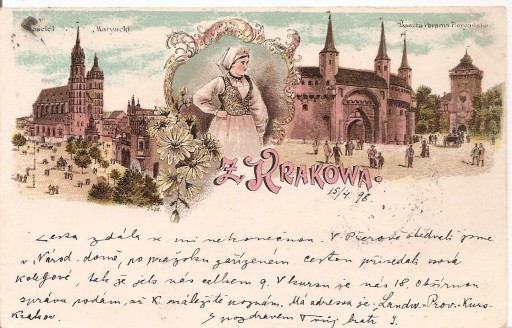 Kościół Maryacki
Baszta i brama Floryańska
Z KRAKOWA.
15/4 98
Cesta zdála se mi nekonečnou. V Přerově obědvali jsme
v Národ. domě, po pražsku zařízeném cestou přisedali noví
kolegové, tak že jelo nás celkem 9. V kursu je nás 18. Obšírnou
zprávu podám, až K. náležitě poznám. Má adressa je: Landw. Prov. Kurs
Krakov.
S pozdravem Tvůj bratr J.